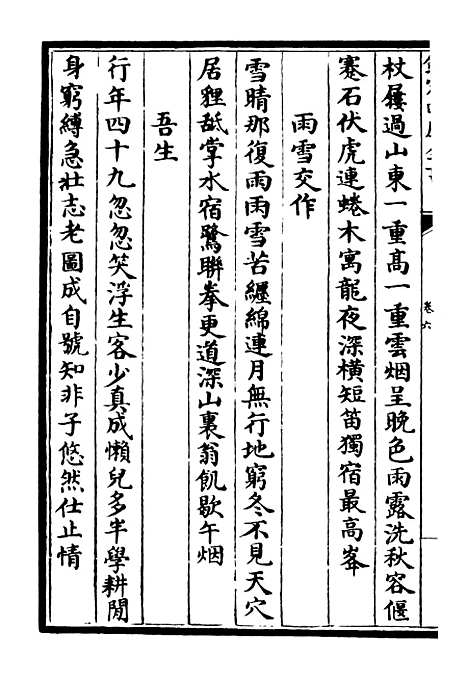 杖屨過山東一重髙一重雲烟呈晚色雨露洗秋容偃
蹇石伏虎連蜷木寓龍夜深横短笛獨宿最髙峯
雨雪交作
雪晴那復雨雨雪苦纒綿連月無行地窮冬不見天穴
居貍舐掌水宿鷺聨拳更道深山裏翁飢歇午烟
吾生
行年四十九忽忽笑浮生客少真成懶兒多半學耕閒
身窮縛急壯志老圖成自號知非子悠然仕止情
卷六